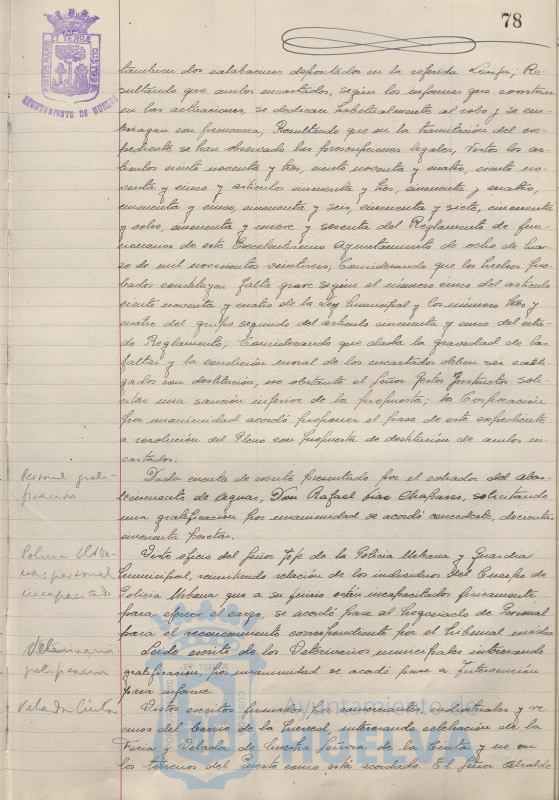 78
AYUNTAMIENTO DE HUELVA
tambien dos calabacines depositados en la referida Lonja; Re-
sultando que ambos encartados, según los informes que constan
en las actuaciones, se dedican habitualmente al robo y se em-
briagan con frecuencia; Resultando que en la tramitación del ex-
pediente se han observado las prescripciones legales, Vistos los ar-
tículos ciento noventa y tres, ciento noventa y cuatro, ciento no-
venta y cinco y artículos cincuenta y tres, cincuenta y cuatro,
cincuenta y cinco, cincuenta y seis, cincuenta y siete, cincuenta
y ocho, cincuenta y nueve y sesenta del Reglamento de fun-
cionarios de este Excelentísimo Ayuntamiento de ocho de mar-
zo de mil novecientos veintiseis; Considerando que los hechos pro-
bados constituyen falta grave según el número cinco del artículo
ciento noventa y cuatro de la Ley Municipal y los números tres y
cuatro del grupo segundo del artículo cincuenta y cinco del cita-
do Reglamento; Considerando que dada la gravedad de las
faltas y la condición moral de los encartados deben ser casti-
gados con destitución, no obstante el Señor Gestor Instructor soli-
citar una sanción inferior de la propuesta; la Corporación
por unanimidad acordó proponer el pase de este expediente
a resolución del Pleno con propuesta de destitución de ambos en-
cartados.
Personal gratificación
Dada cuenta de escrito presentado por el cobrador del abas-
tecimiento de aguas, Don Rafael Díaz Chaparro, solicitando
una gratificación por unanimidad se acordó concederle, doscientas
cincuenta pesetas.
Policía Urbana: personal incapacitado
Visto oficio del Señor Jefe de la Policía Urbana y Guardia
Municipal, remitiendo relación de los individuos del Cuerpo de
Policía Urbana que a su juicio están incapacitados fisicamente
para ejercer el cargo, se acordó pase al Negociado de Personal
para el reconocimiento correspondiente por el tribunal médico
Veterinarios gratificación
Leido escrito de los Veterinarios municipales interesando
gratificación, por unanimidad se acordó pase a Intervención
para informe.
Velada Cinta
Vistos escritos firmados por comerciantes, industriales y ve-
cinos del barrio de la Merced, interesando celebración de la
Feria y Velada de Nuestra Señora de la Cinta y no en
los terrenos del Puerto como está acordado. El Señor Alcalde
Ayuntamiento de
HUELVA